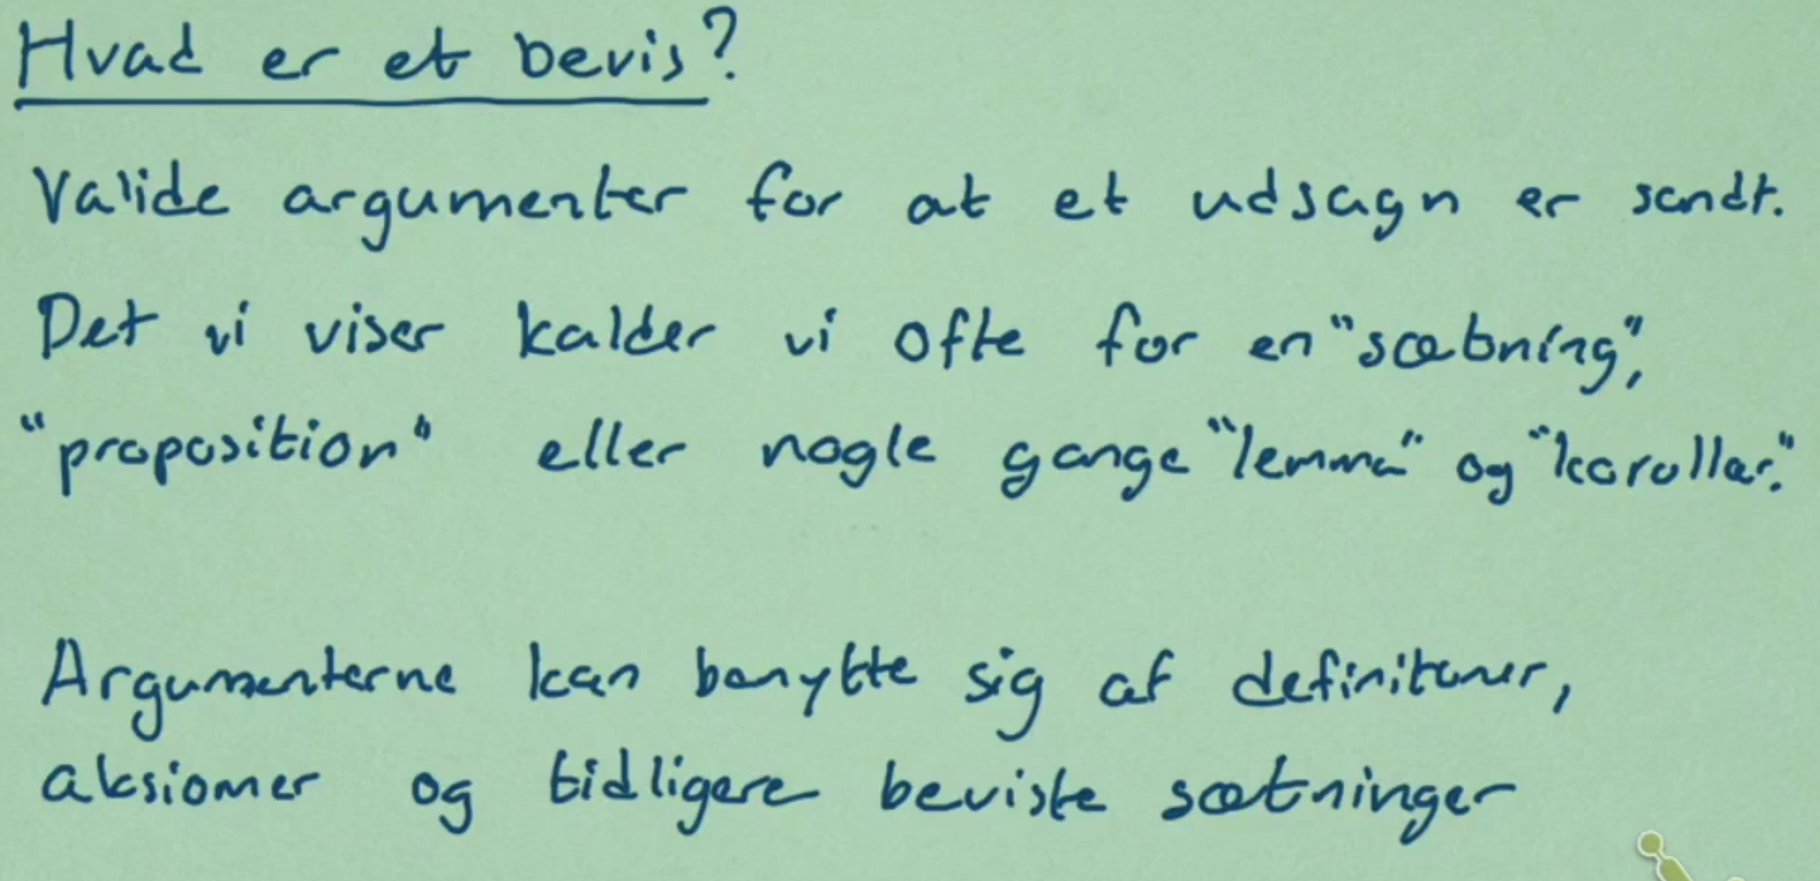 Hvad er et bevis?
Valide argumenter for at et udsagn er sandt.
Det vi viser kalder vi ofte for en "sætning",
"proposition" eller nogle gange "lemma" og "korollar."
Argumenterne kan benytte sig af definitioner,
aksiomer og tidligere beviste sætninger